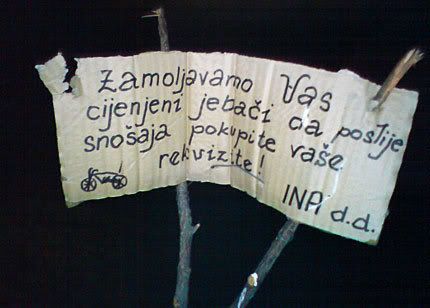 Zamoljavamo Vas
cijenjeni jebači da poslije
snošaja pokupite vaše
rekvizite!
INA d.d.